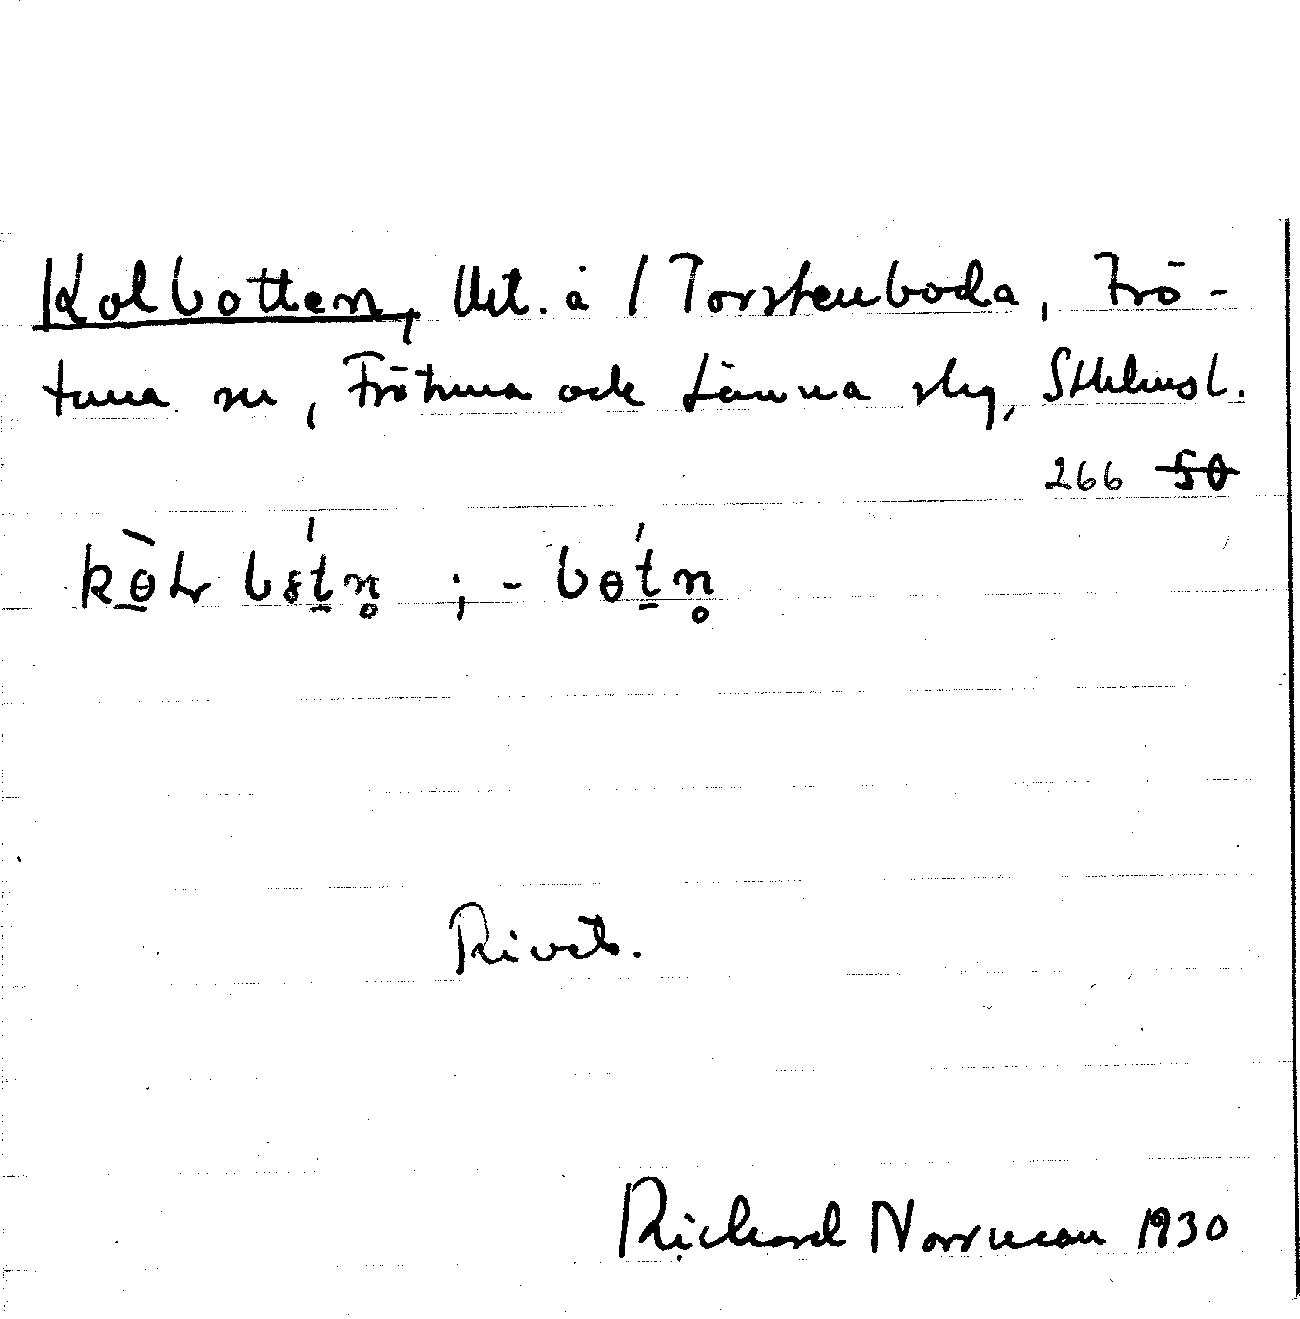 Kolbotten, Utt. å / Torstenboda, Frö-
tuna sn, Frötuna och Länna skg, Sthlmsl.
266 50
kɵ̀lr bɛtn̥ ; - bɵtn̥
Rivet.
Richard Norrman 1930